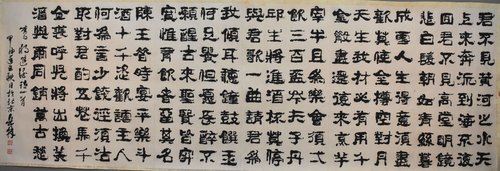 君不見黃河之水天
上來奔流到海不復
回君不見高堂明鏡
悲白髮朝如青絲暮
成雪人生得意須盡
歡莫使金樽空對月
天生我材必有用千
金散盡還復來烹羊
宰牛且爲樂會須一
飲三百杯岑夫子丹
邱生將進酒杯莫停
與君歌一曲請君爲
我傾耳聽鐘鼓饌玉
不足貴但願長醉不
願醒古來聖賢皆寂
寞惟有飲者留其名
陳王昔時宴平樂斗
酒十千恣歡謔主人
何爲言少錢徑須沽
取對君酌五花馬千
金裘呼兒將出換美
酒與爾同銷萬古愁
李白將進酒詩一首